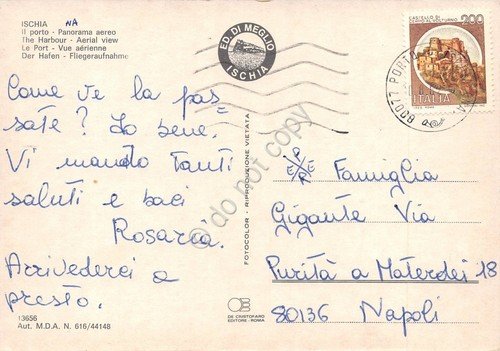 ISCHIA NA
Il porto - Panorama aereo
The Harbour - Aerial view
Le Port - Vue aérienne
Der Hafen - Fliegeraufnahme
ED. DI MEGLIO
ISCHIA
CASTELLO DI
200
ITALIA
80077 PORTO
Come ve la pas
sate? Io bene.
Vi mando tanti
saluti e baci
Rosaria.
Arrivederci a
presto.
13656
Aut. M.D.A. N. 616/44148
FOTOCOLOR - RIPRODUZIONE VIETATA
DE CRISTOFARO
EDITORE - ROMA
Famiglia
Gigante Via
Purità a Materdei 18
80136 Napoli
© do not copy